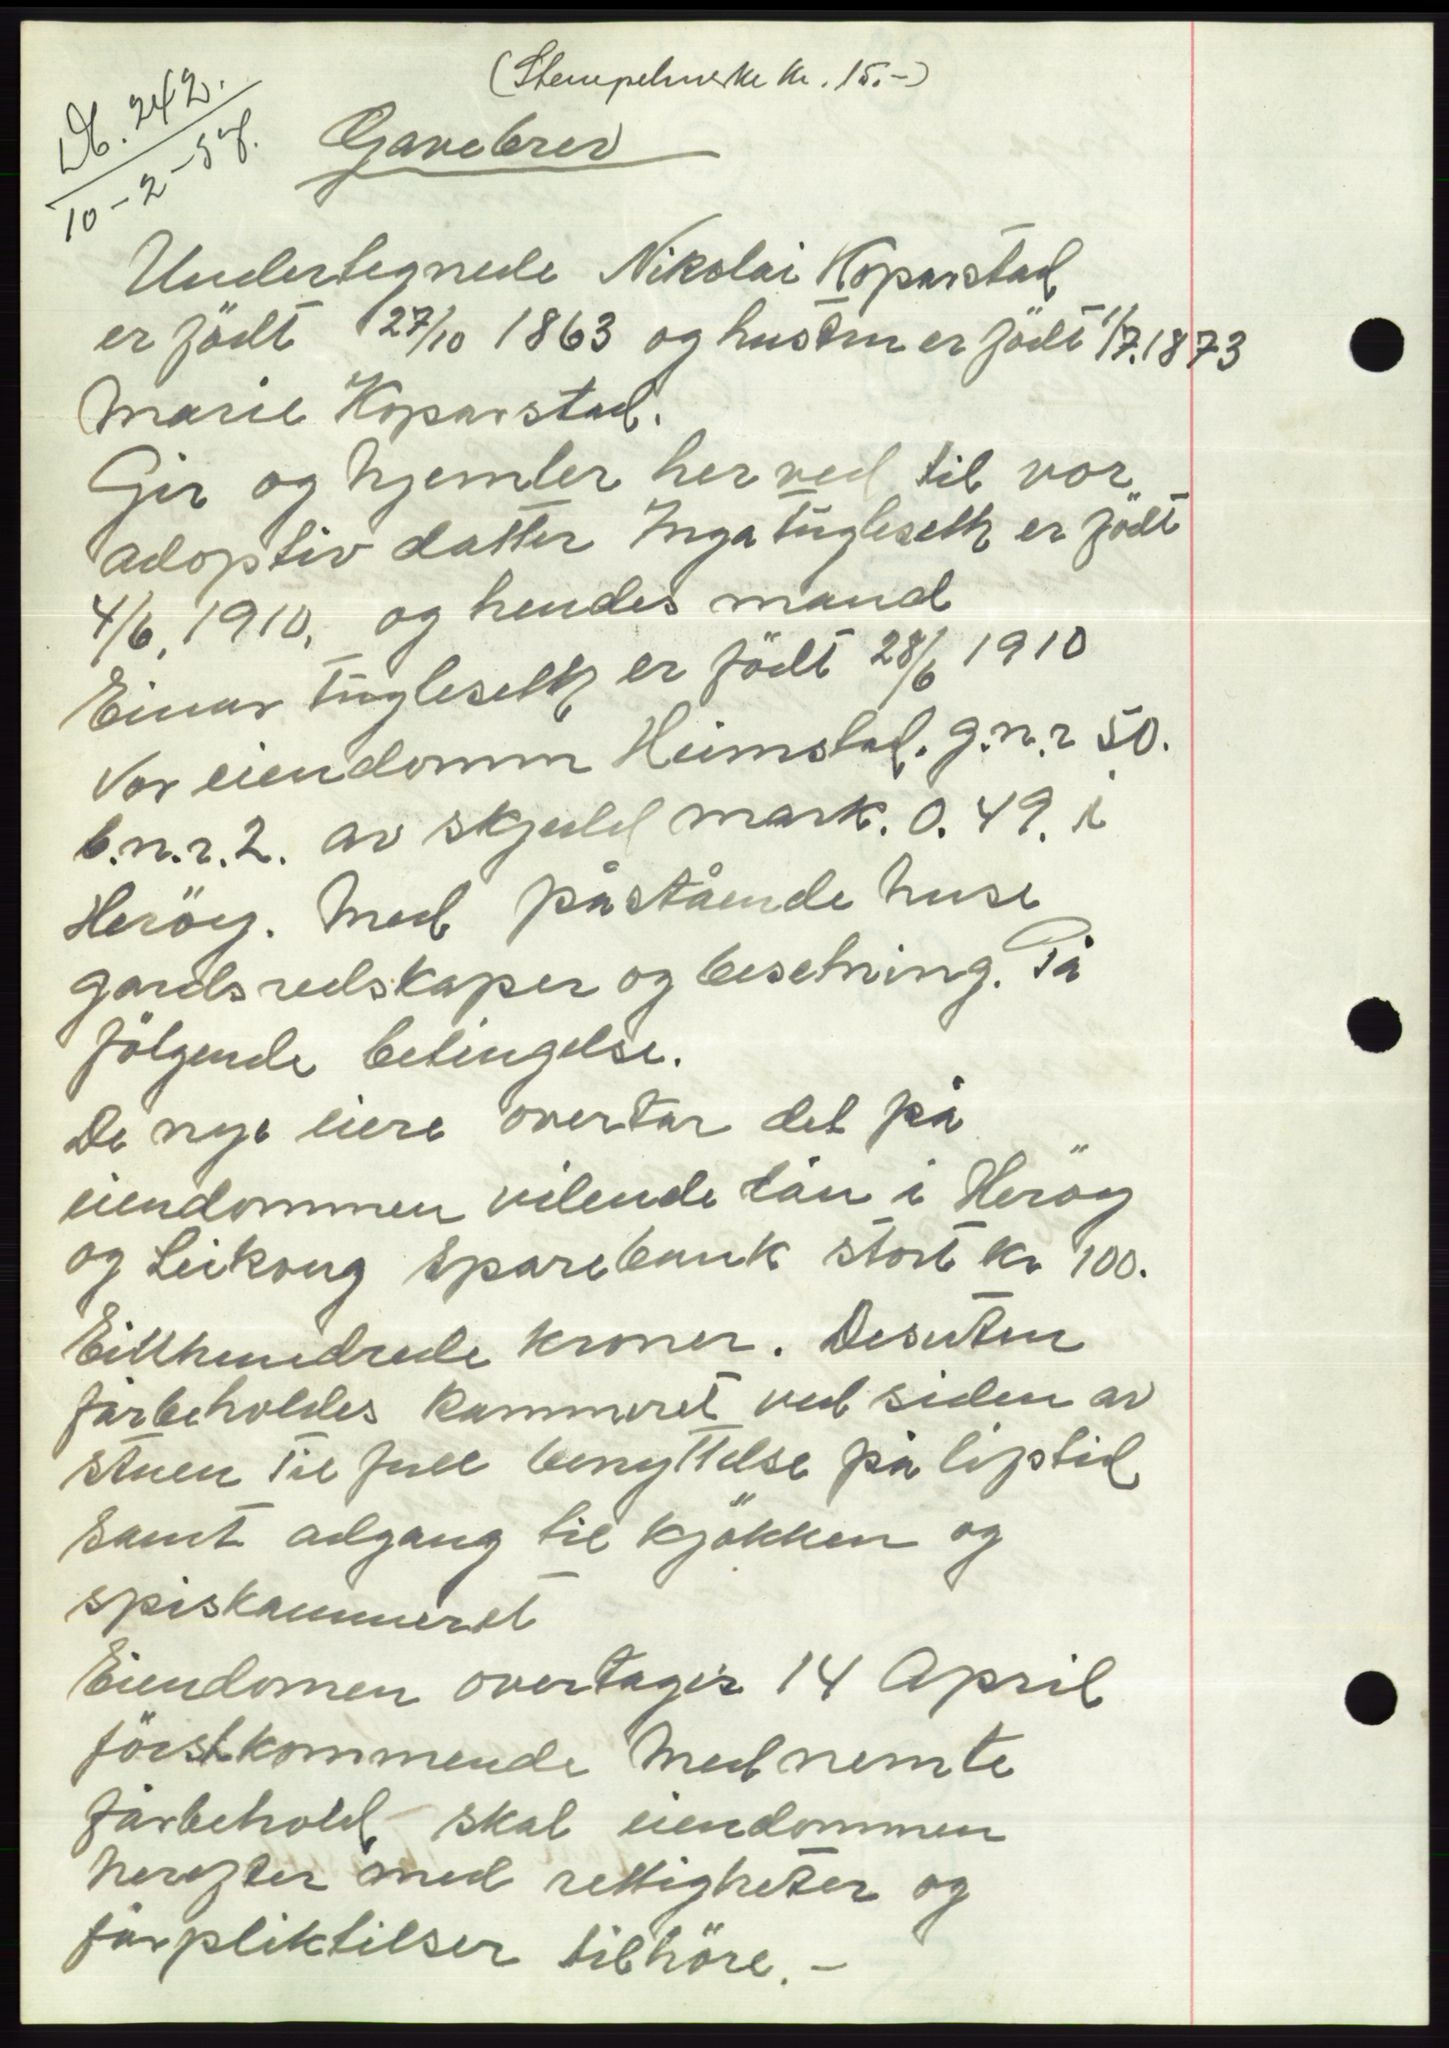 (Stempelmerke kr. 15.-)
Db. 242.
10-2-37.
Gavebrev
Undertegnede Nikolai Koparstad
er födt 27/10 1863 og hustru er födt 1/7.1873
Marie Koparstad.
Gir og hjemler herved til vor
adoptiv datter Inga Tugleseth er födt
4/6, 1910, og hendes mand
Einar Tugleseth er födt 28/6 1910
Vor eiendomm Heimstad. g.n.r 50.
b.n.r. 2. av skjuld mark. 0.49. i
Heröy. Med påstående huse
gardsredskaper og besetning. På
fölgende betingelse.
De nye eiere overtar det på
eiendommen vilende lån i Heröy
og Leikong Sparebank stort kr 100.
Eitthundrede kroner. Desuten
forbeholdes kammeret ved siden av
stuen til full benyttelse på liftid
samt adgang til kjökken og
spiskammeret
Eiendomen overtages 14 April
förstkommende Med nemte
forbehold skal eiendommen
herefter med rettigheter og
forpliktilser tilhöre.-